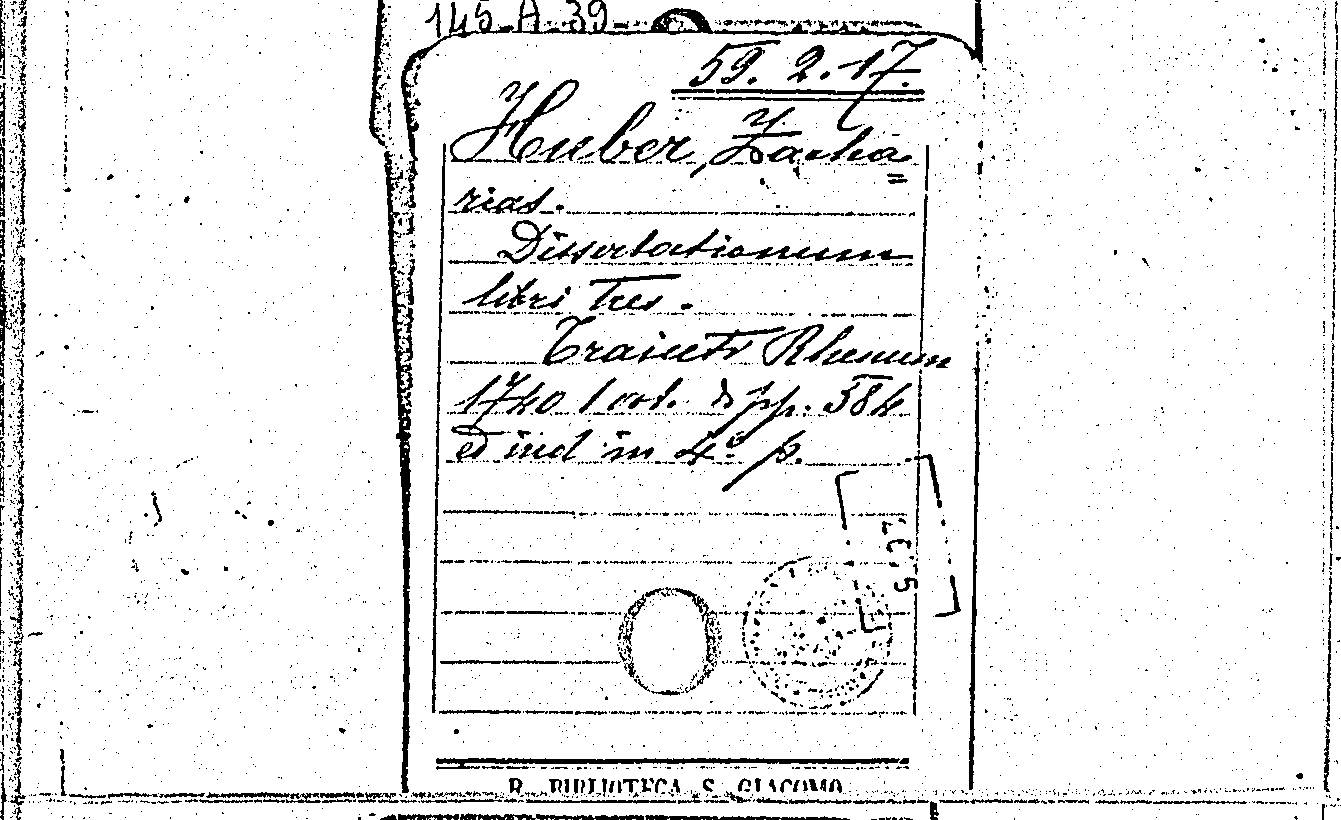 145-A-39-
59. 2.17.
Huber, Zacha=
rias.
Dissertationum
libri Tres.
Traiecti Rhenum
1740 1 vol. di pp. 384
ed ind in 4° p.
R. BIBLIOTECA S. GIACOMO